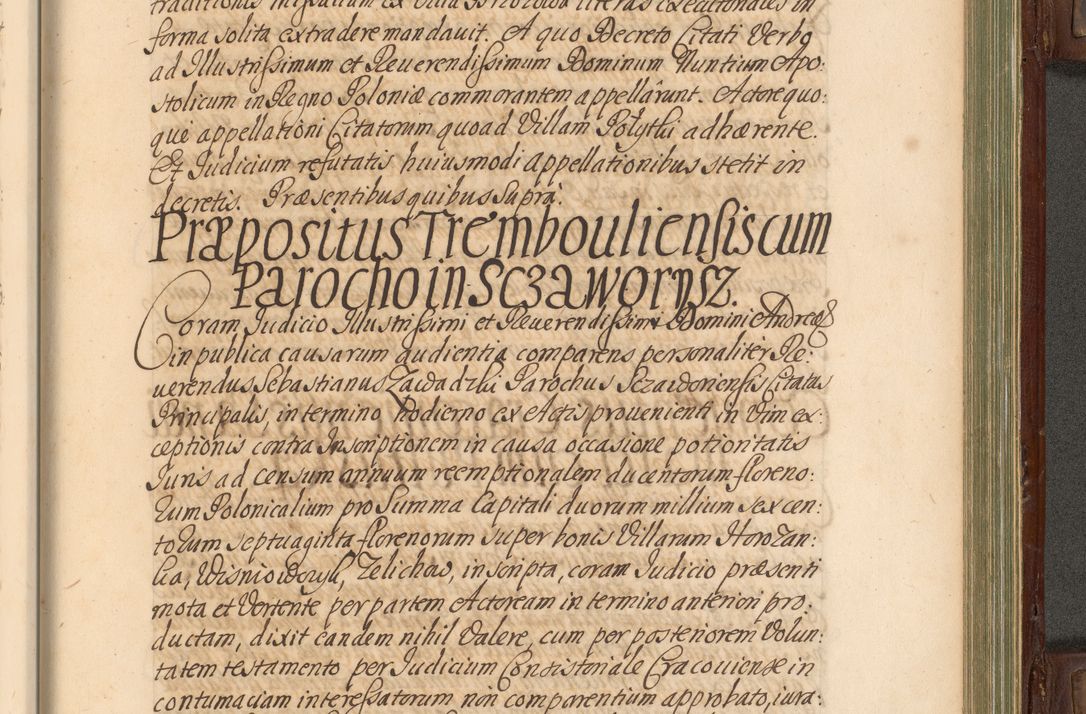 traditionis missilium ex Villa literas executoriales in
forma solita extradere mandauit. A quo Decreto Citati Verbo
ad Illustrissimum et Reuerendissimum Dominum Nuntium Apo:
stolicum in Regno Poloniæ commorantem appellârunt. Actore quo:
què appellationi Citatorum quoad Villam Polytki adhærente.
Et Iudicium refutatis huiusmodi appellationibus stetit in
decretis. Præsentibus quibus suprà.
Præpositus Trembouliensis cum
Parocho in Sczaworysz.
Coram Iudicio Illustrissimi et Reuerendissimi Domini Andreæ &
in publica causarum audientia comparens personaliter Re:
uerendus Sebastianus Zawadzki Parochus Sczaworiensis Citatus
Principalis, in termino hodierno ex Actis prouenienti in Vim ex:
ceptionis contra Inscriptionem in causa occasione potioritatis
Iuris ad censum annuum reemptionalem ducentorum floreno:
rum Polonicalium pro Summa Capitali duorum millium sexcen:
torum septuaginta florenorum super bonis Villarum
Wisniowczyk, Zelichow, inscripta, coram Iudicio præsenti
mota et Vertente per partem Actoream in termino anteriori pro:
ductam, dixit eandem nihil Valere, cum per posteriorem Volun:
tatem testamento per Iudicium Consistoriale Cracouiense in
contumaciam interessatorum non comparentium approbato, iura: